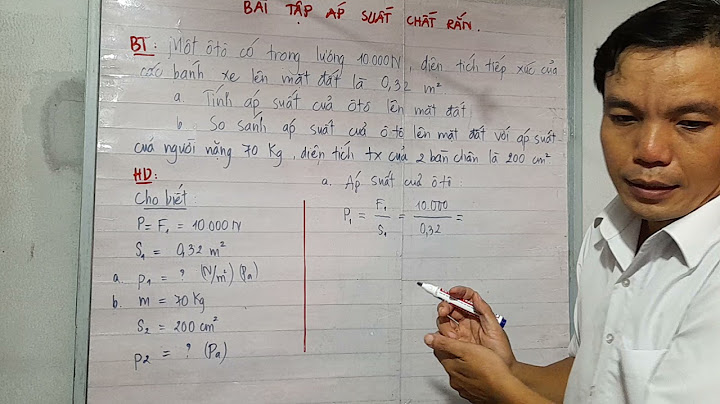 BÀI TẬP ÁP SUẤT CHẤT RẮN.
BT: Một ôtô có trọng lượng 10.000N, diện tích tiếp xúc của
các bánh xe lên mặt đất là 0,32 m²
a. Tính áp suất của ôtô lên mặt đất
b. So sánh áp suất của ôtô lên mặt đất với áp suất
của người nặng 70 Kg, diện tích tx của 2 bàn chân là 200 cm²
HD:
Cho biết:
P = F₁ = 10.000N
S₁ = 0,32 m²
a. P₁ = ? (N/m²) (Pa)
b. m = 70 Kg
S₂ = 200 cm²
P2 = ? (Pa)
a. Áp suất của ôtô
P₁ = F₁/S₁ = 10.000/0,32 =